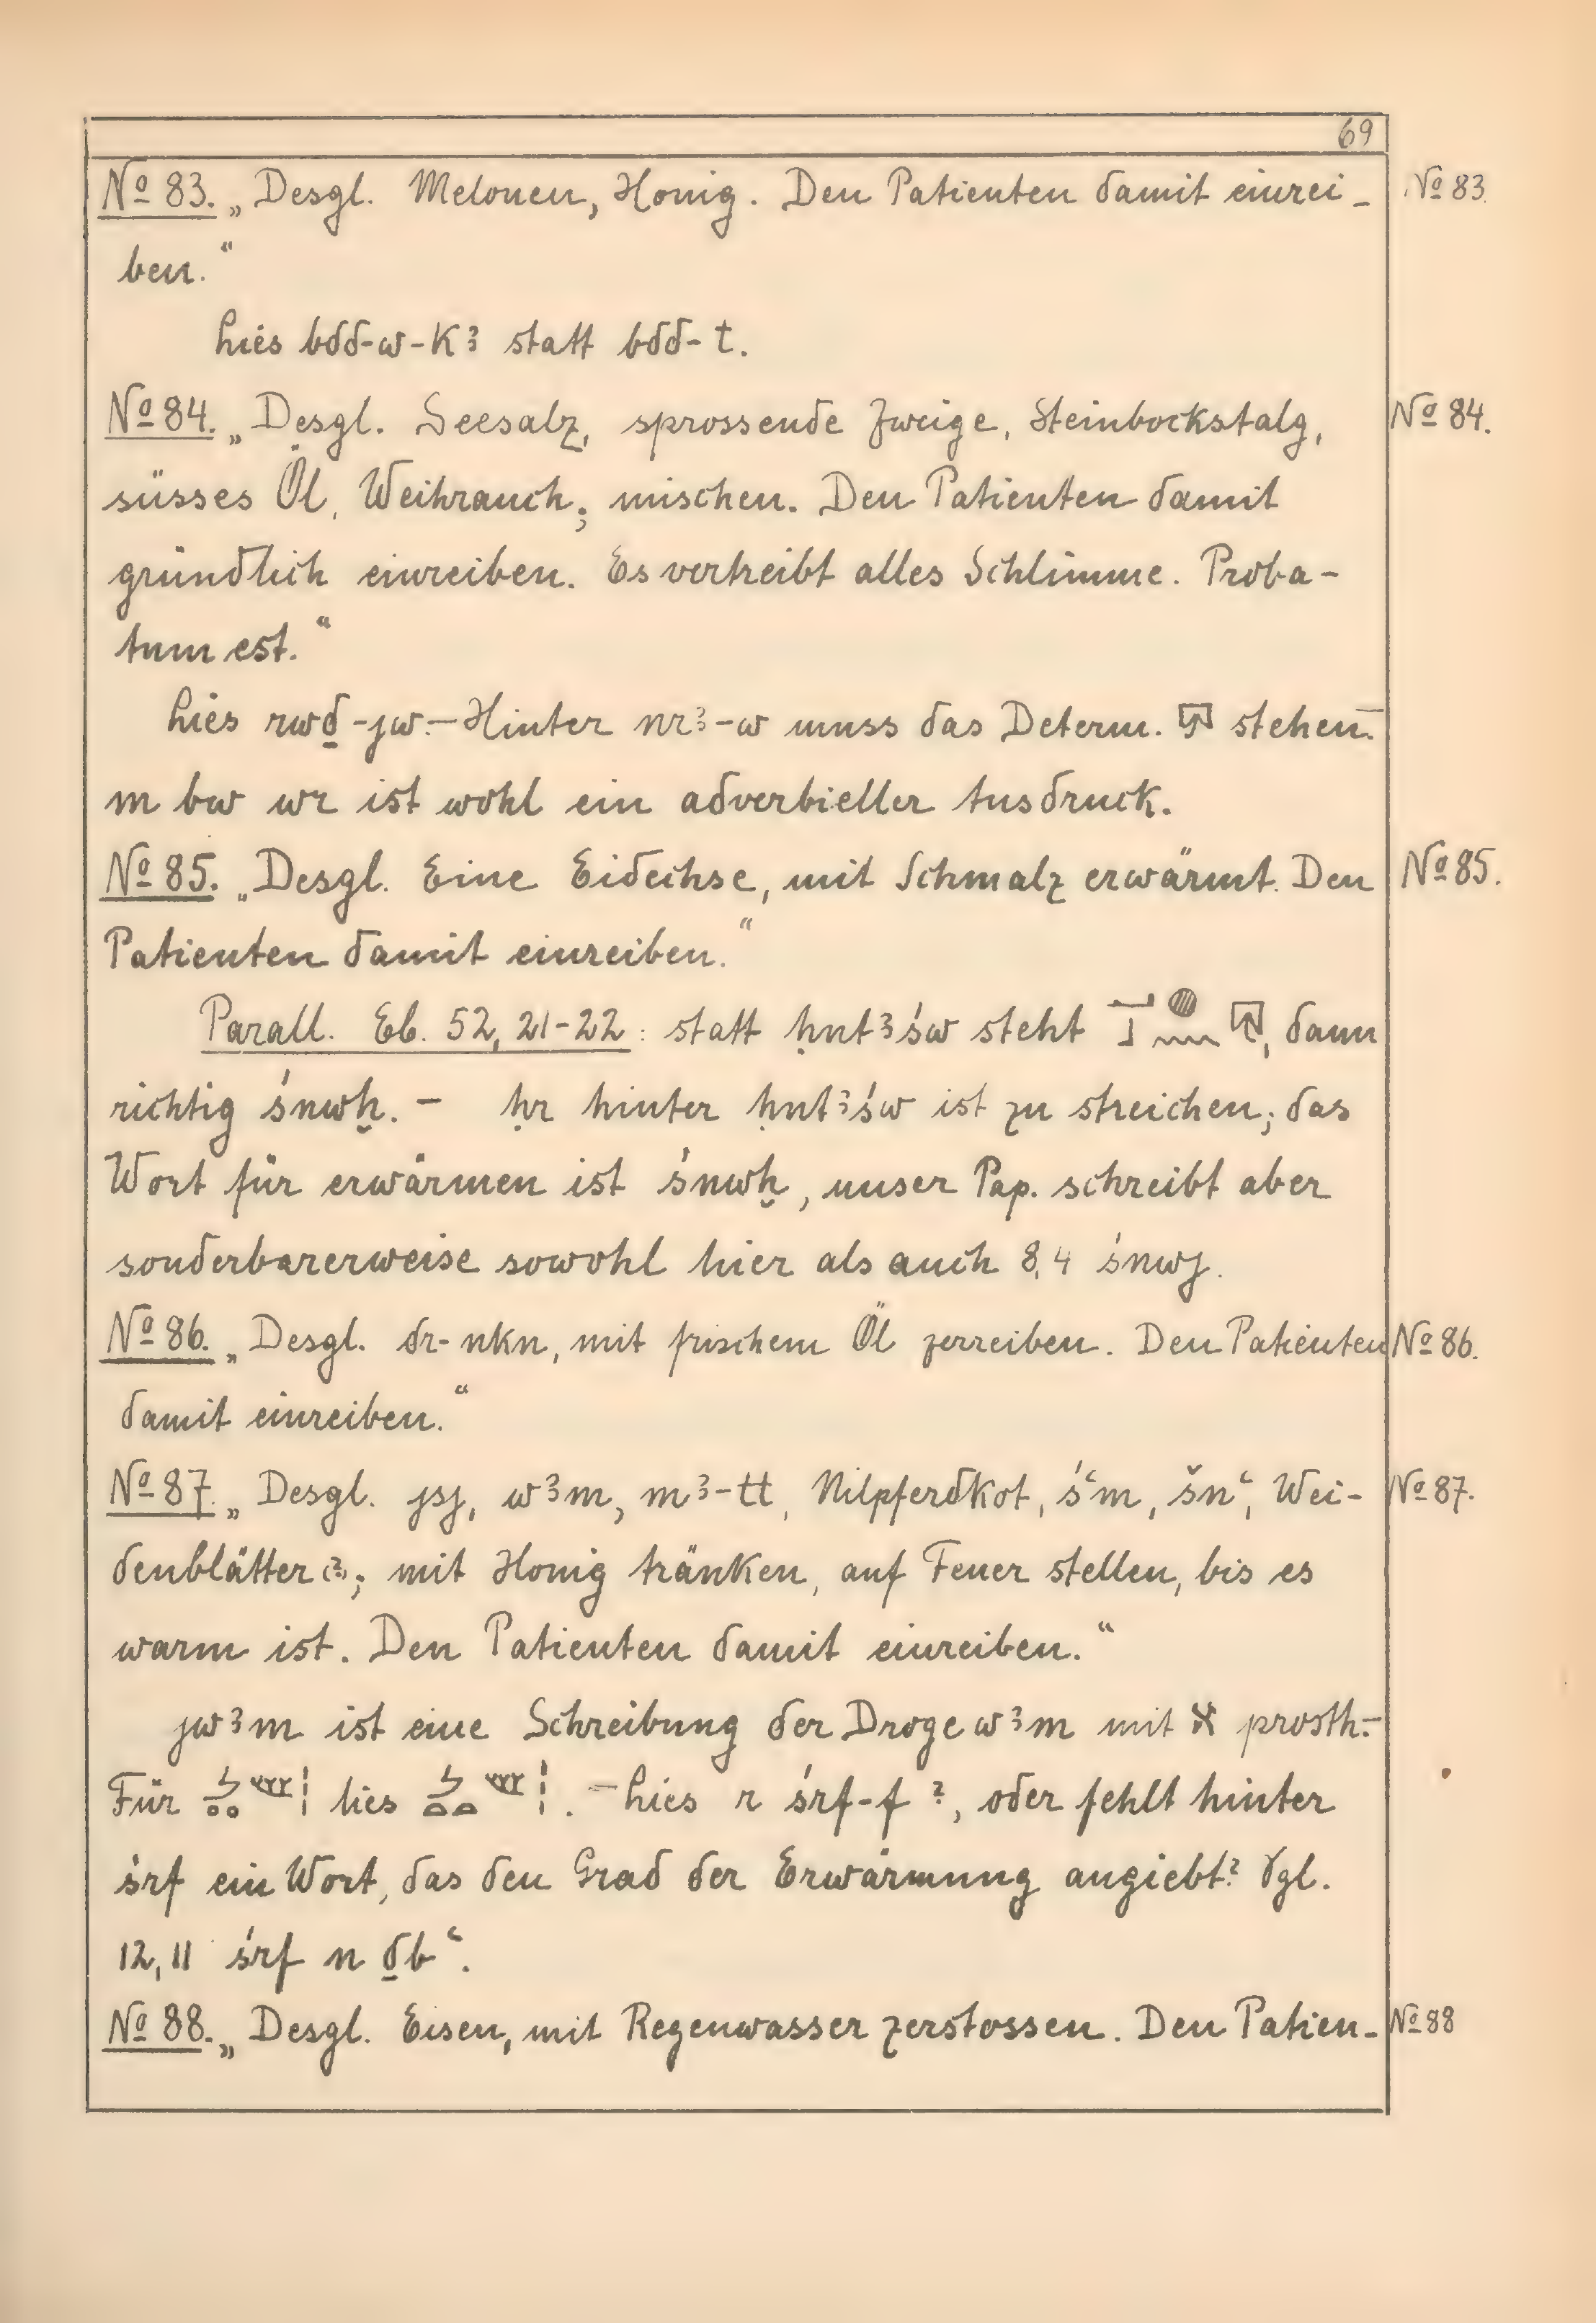 69
No 83. „Desgl. Melonen, Honig. Den Patienten damit einrei- No 83.
ben.“
Lies bdd-w-kꜣ statt bdd-t.
No 84. „Desgl. Seesalz, sprossende Zweige, Steinbockstalg, No 84.
süsses Öl, Weihrauch; mischen. Den Patienten damit
gründlich einreiben. Es vertreibt alles Schlimme. Proba-
tum est.“
Lies rwḏ-jw. – Hinter nrꜣ-w muss das Determ. stehen. –
m bw wr ist wohl ein adverbieller Ausdruck.
No 85. „Desgl. Eine Eidechse, mit Schmalz erwärmt. Den No 85.
Patienten damit einreiben.“
Parall. Eb. 52, 21-22: statt ḥntꜣśw steht , dann
richtig śnwḫ. – ḥr hinter ḥntꜣśw ist zu streichen; das
Wort für erwärmen ist śnwḫ, unser Pap. schreibt aber
sonderbarerweise sowohl hier als auch 8,4 śnwj.
No 86. „Desgl. dr-nkn, mit frischem Öl zerreiben. Den Patienten No 86.
damit einreiben.“
No 87. „Desgl. jsj, wꜣm, mꜣ-tt, Nilpferdkot, śꜥm, šnꜥ, Wei- No 87.
denblätter(?); mit Honig tränken, auf Feuer stellen, bis es
warm ist. Den Patienten damit einreiben.“
jwꜣm ist eine Schreibung der Droge wꜣm mit א prosth. –
Für lies . – Lies r śrf-f ?, oder fehlt hinter
śrf ein Wort, das den Grad der Erwärmung angiebt? Vgl.
12,11 śrf n ḏbꜥ.
No 88. „Desgl. Eisen, mit Regenwasser zerstossen. Den Patien- No 88